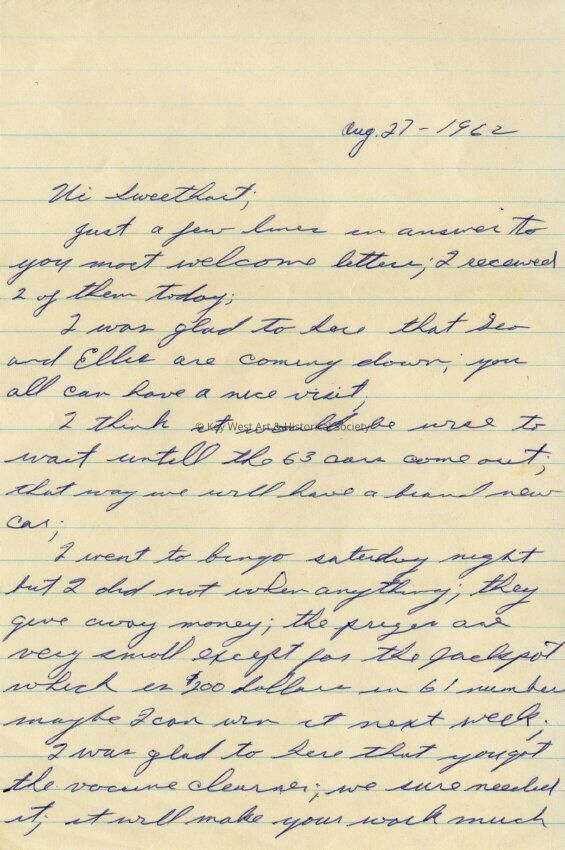 Aug. 27 - 1962
Hi Sweethart;
Just a few lines in answer to
you most welcome letters; I received
2 of them today;
I was glad to here that Geo
and Ellie are coming down; you
all can have a nice visit,
I think it would be wise to
© Key West Art & Historical Society
wait untill the 63 cars come out;
that way we will have a brand new
car;
I went to bingo saterday night
but I did not when anything; they
give away money; the prizes are
very small except for the Jackpot
which is $200 dollars in 61 number
maybe I can win it next week;
I was glad to here that you got
the vacume cleaner; we sure needed
it; it will make your work much